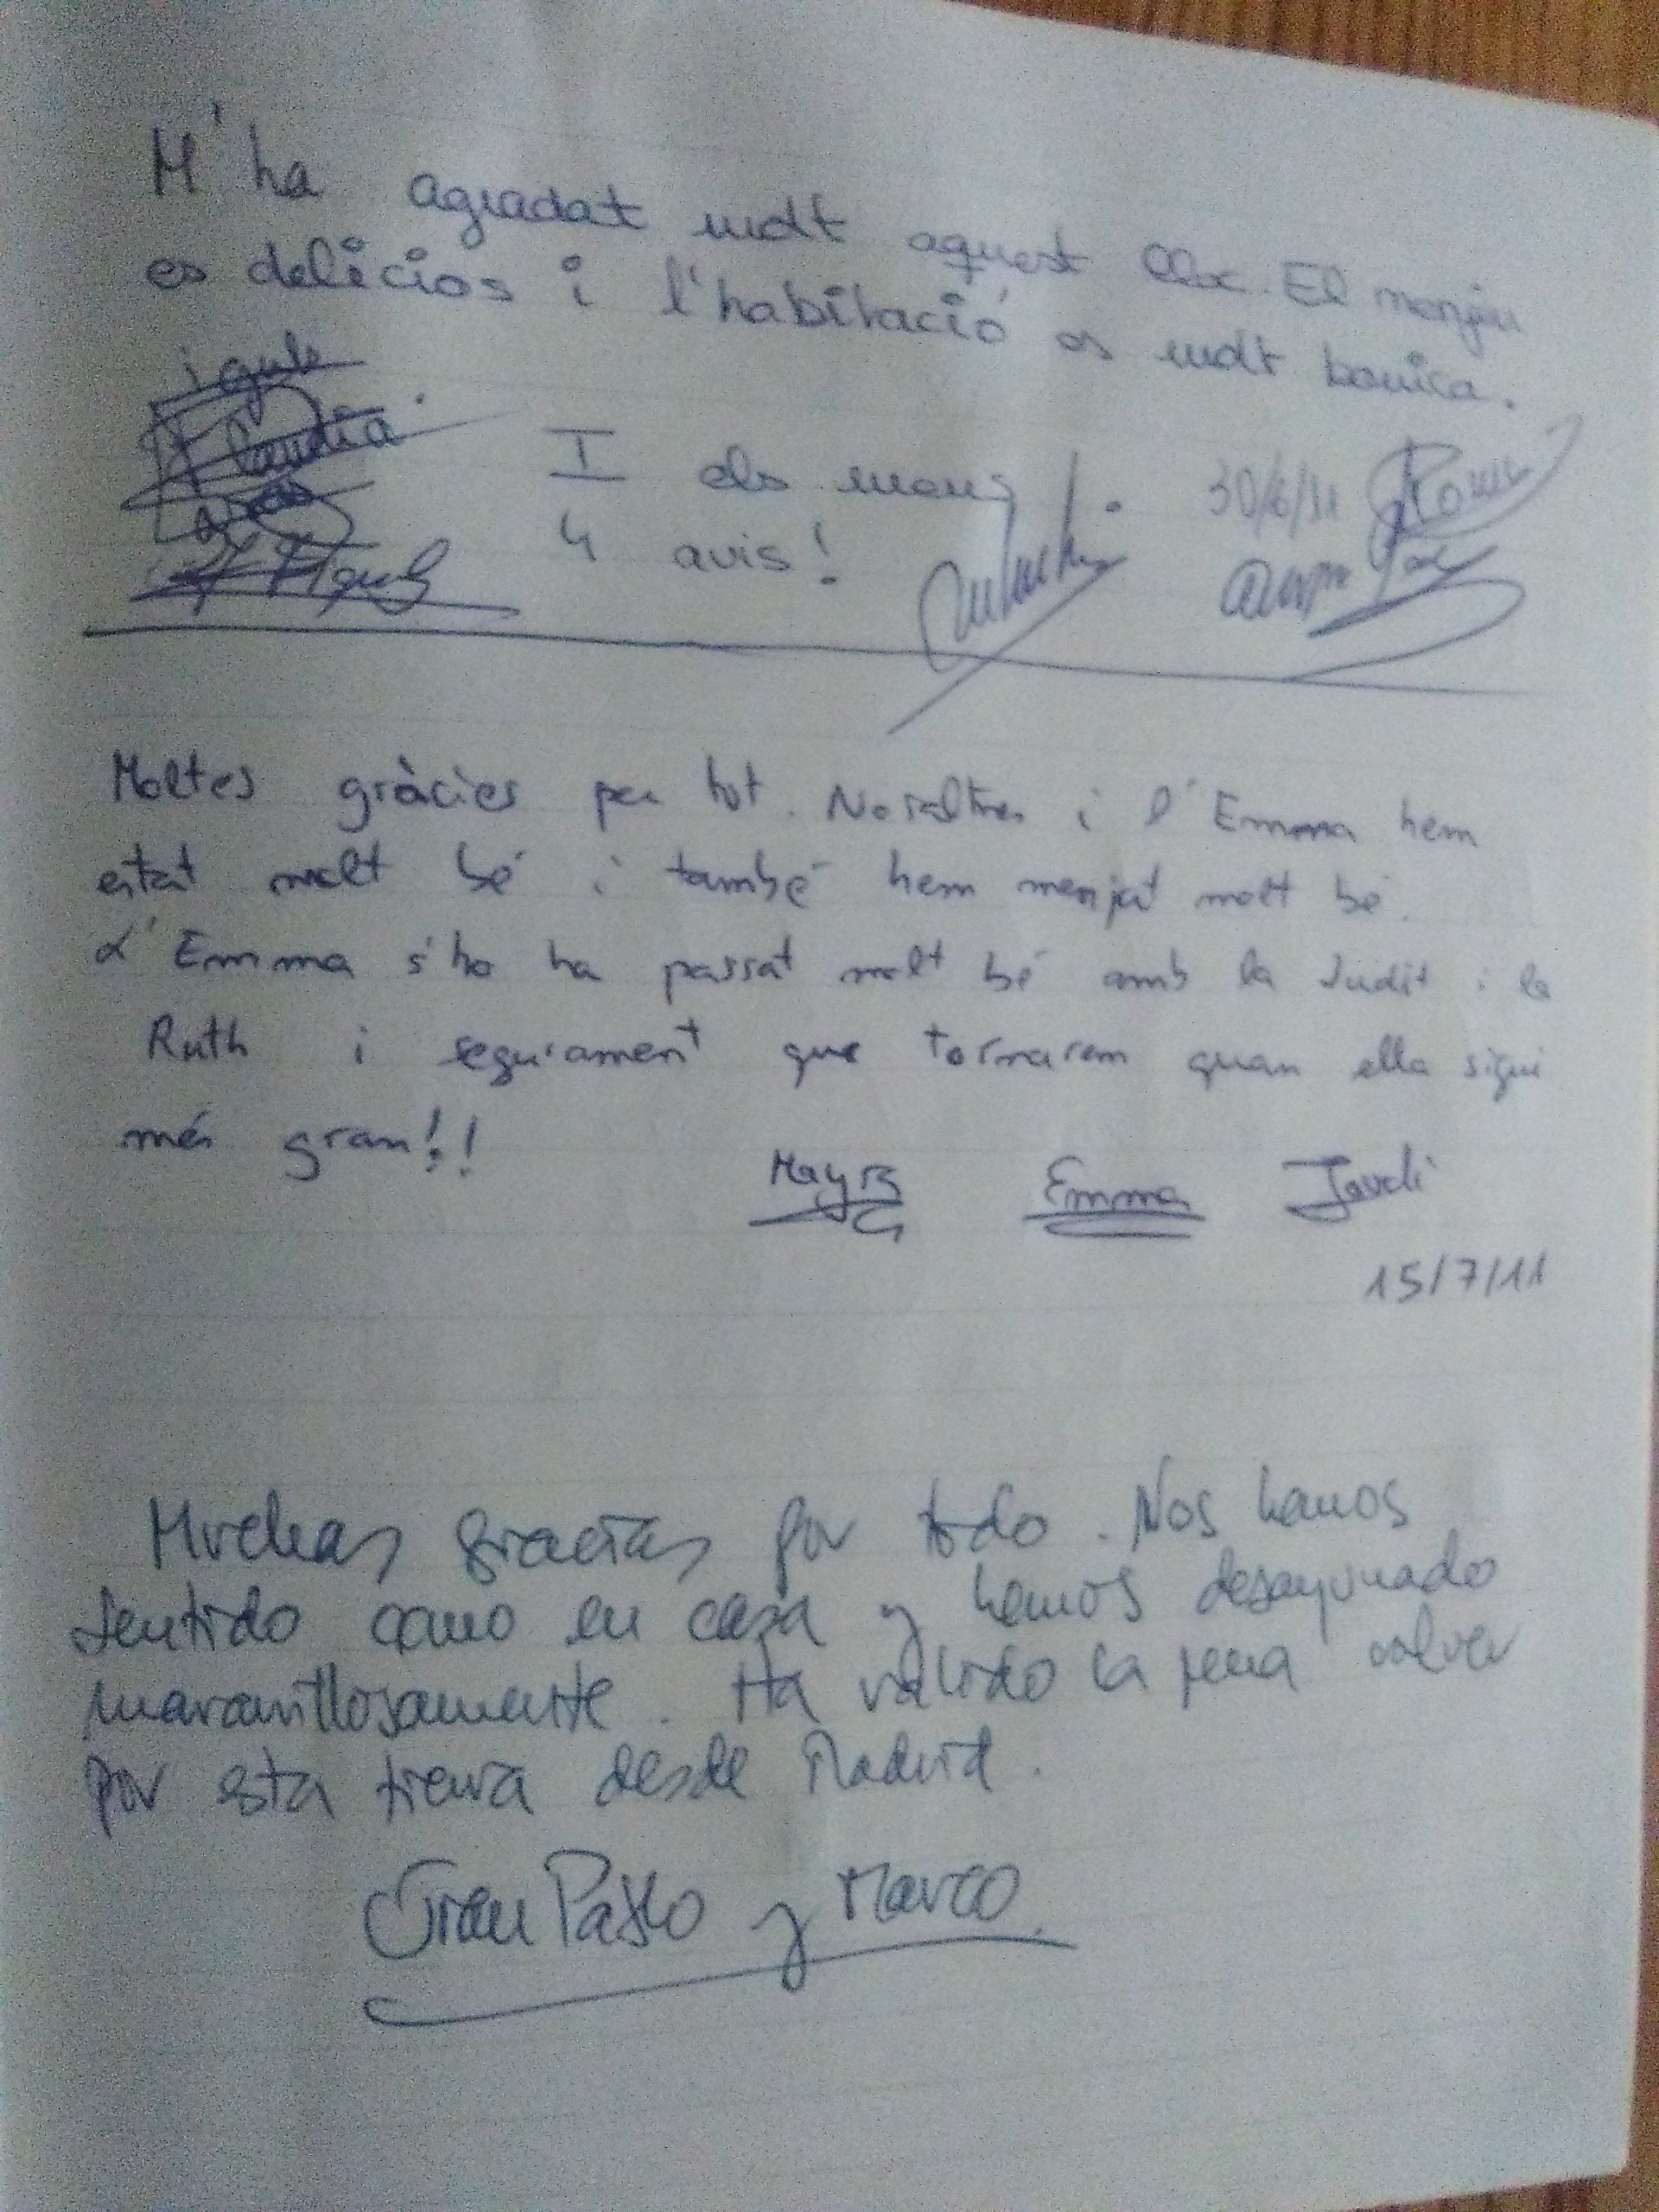 M'ha agradat molt aquest lloc. El menjau
es delicios i l'habitació es molt bonica.
I els meus
4 avis!
30/6/11
Moltes gràcies per tot. Nosaltres i l'Emma hem
estat molt bé i també hem menjat molt bé.
L'Emma s'ho ha passat molt bé amb la Judit i la
Ruth i segurament que tornarem quan ella sigui
més gran!!
Mayra Emma Jordi
15/7/11
Muchas gracias por todo. Nos hemos
sentido como en casa y hemos desayunado
maravillosamente. Ha valido la pena volver
por esta tierra desde Madrid.
Pablo y Marco